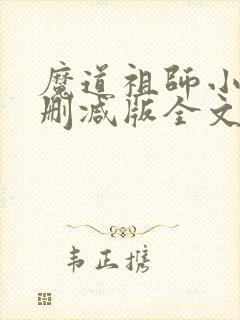 魔道祖师小
删减版全文
韦正携